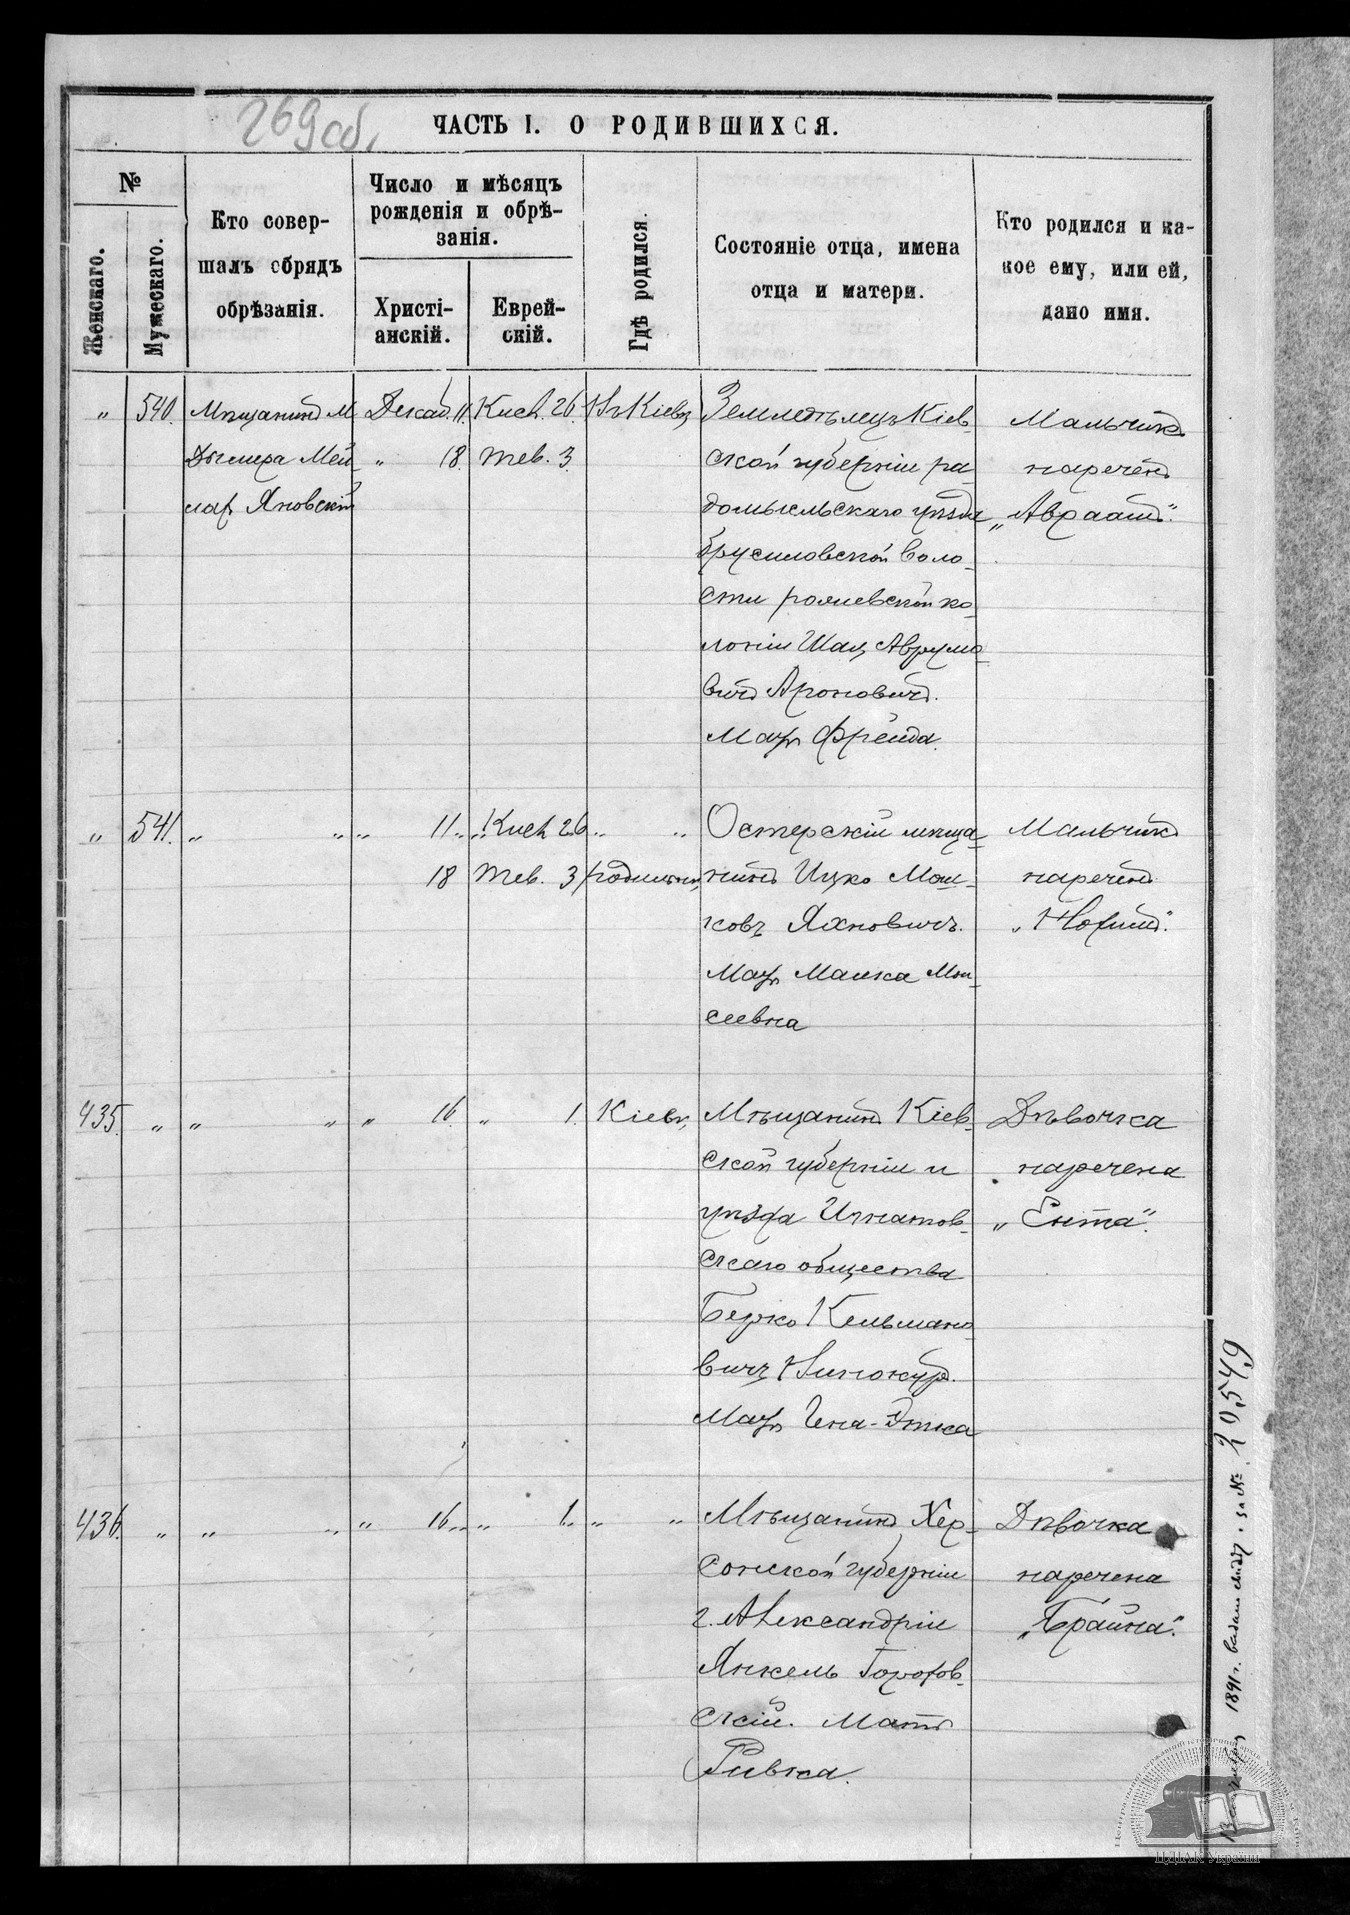 269 об.
ЧАСТЬ I. О РОДИВШИХСЯ.
№
Женскаго.
Мужескаго.
Кто совер-
шалъ обрядъ
обрѣзанія.
Число и мѣсяцъ
рожденія и обрѣ-
занія.
Христі-
анскій.
Еврей-
скій.
Гдѣ родился.
Состояніе отца, имена
отца и матери.
Кто родился и ка-
кое ему, или ей,
дано имя.
„ 540.
Мѣщанинъ М
Дымера Мей
лах Яновскій
Декаб. 11.
„ 18
Кисл. 26.
Тев. 3.
Въ Кіевѣ
Земледѣлецъ Кіев-
ской губерніи ра-
домысльскаго уѣзда
брусиловской воло-
сти
ко-
лоніи Шая Аврумо-
вичъ Ароновичъ.
Мать Фрейда.
Мальчикъ
нареченъ
„Авраамъ".
„ 541. „ „
„ 11 „
18
„ Кисл 26
Тев. 3
„ „
родильн.
Остерскій мѣща-
нинъ Ицко Мош-
ковъ Яхновичъ.
Мать Малка Мои-
сеевна
Мальчикъ
нареченъ
„Нохимъ".
435. „ „ „
„ 16. „ 1.
Кіевъ
Мѣщанинъ Кіев-
ской губерніи и
уѣзда Игнатов-
скаго общества
Берко Кельмано-
вичъ Винокуръ.
Мать Гена-Этка
Дѣвочка
наречена
„Ента".
436. „ „ „
„ 16 „ „ 1. „ „
Мѣщанинъ Хер-
сонской губерніи
г. Александріи
Янкель Горохов-
скій. Мать
Ривка.
Дѣвочка
наречена
„Брайна".
1891 г. за № 20549
ЦДІАК України